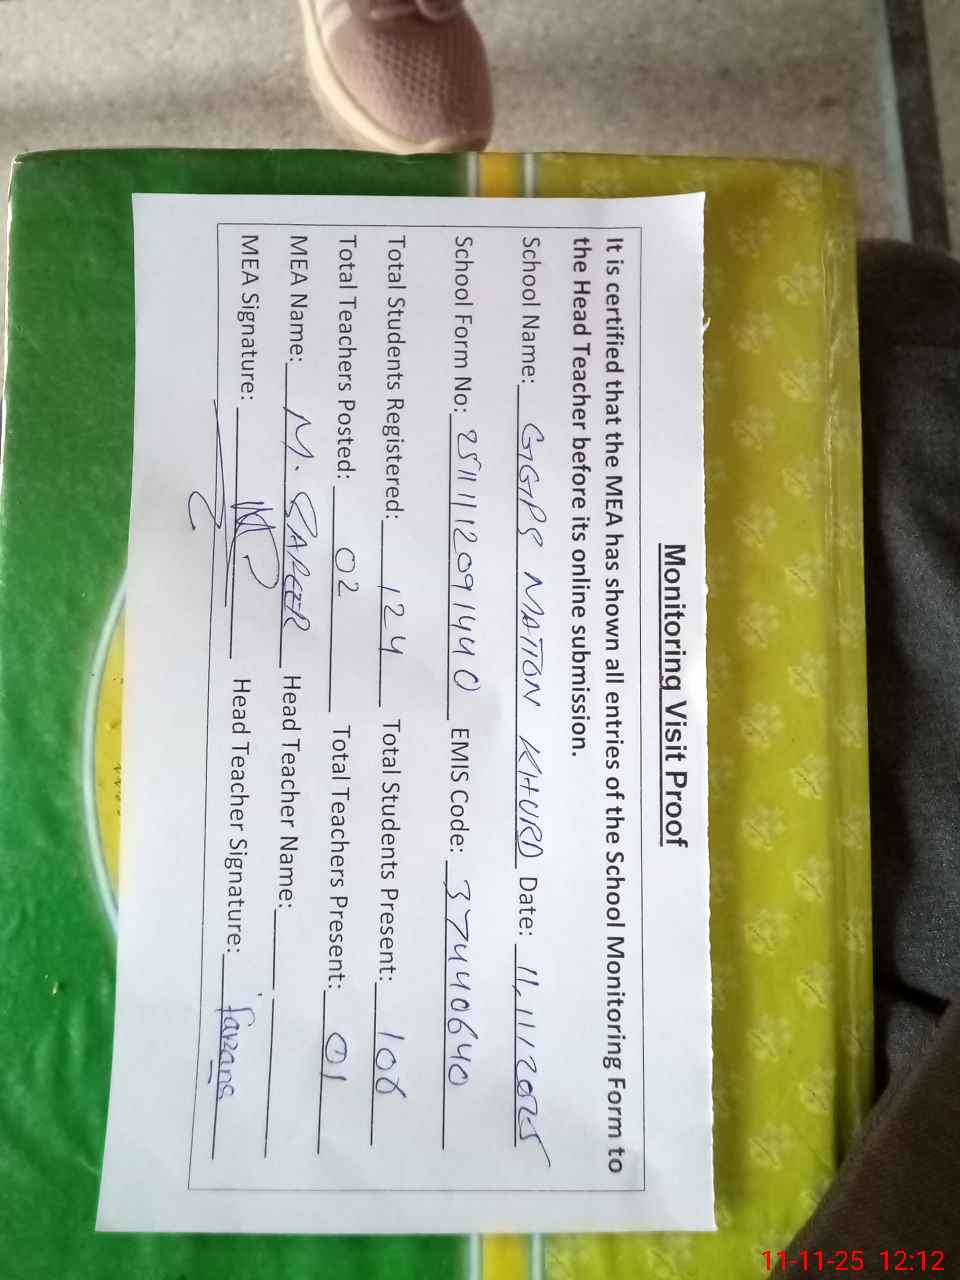 Monitoring Visit Proof
It is certified that the MEA has shown all entries of the School Monitoring Form to
the Head Teacher before its online submission.
School Name: GGPS MATTON KHURD Date: 11,11 2025
School Form No: 25111112091440 EMIS Code: 37440640
Total Students Registered: 124 Total Students Present: 106
Total Teachers Posted: 02 Total Teachers Present: 01
MEA Name: M. Head Teacher Name:
MEA Signature: Head Teacher Signature: farzana
11-11-25 12:12